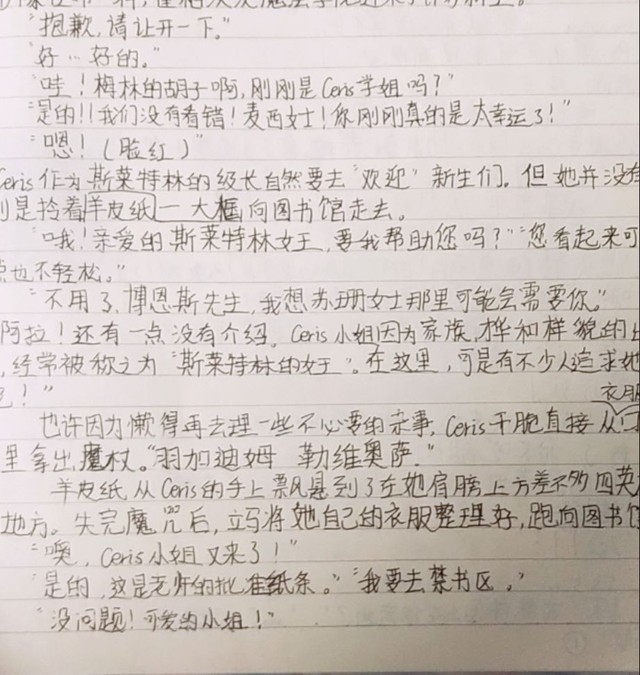 "抱歉,请让开一下。"
"好…好的。"
"哇!梅林的胡子啊,刚刚是Ceris学姐吗?"
"是的!!我们没有看错!麦西女士!你刚刚真的是太幸运了!"
"嗯!(脸红)"
Ceris作为斯莱特林的级长自然要去"欢迎"新生们。但她并没有
是拎着羊皮纸一大框向图书馆走去。
"哦!亲爱的斯莱特林女王,要我帮助您吗?""您看起来可
也不轻松。"
"不用了,博恩斯先生,我想苏珊女士那里可能会需要你。"
阿拉!还有一点没有介绍,Ceris小姐因为家族,才华和样貌的
,经常被称之为"斯莱特林的女王"。在这里,可是有不少人追求她
!"
衣服
也许因为懒得再去理一些不必要的杂事,Ceris干脆直接从口
里拿出魔杖。"羽加迪姆 勒维奥萨"
羊皮纸从Ceris的手上飘悬到了在她肩膀上方差不多四英
地方。失完魔咒后,立马将她自己的衣服整理好,跑向图书馆
"噢,Ceris小姐又来了!"
"是的,这是老师的批准纸条。""我要去禁书区。"
"没问题!可爱的小姐!"